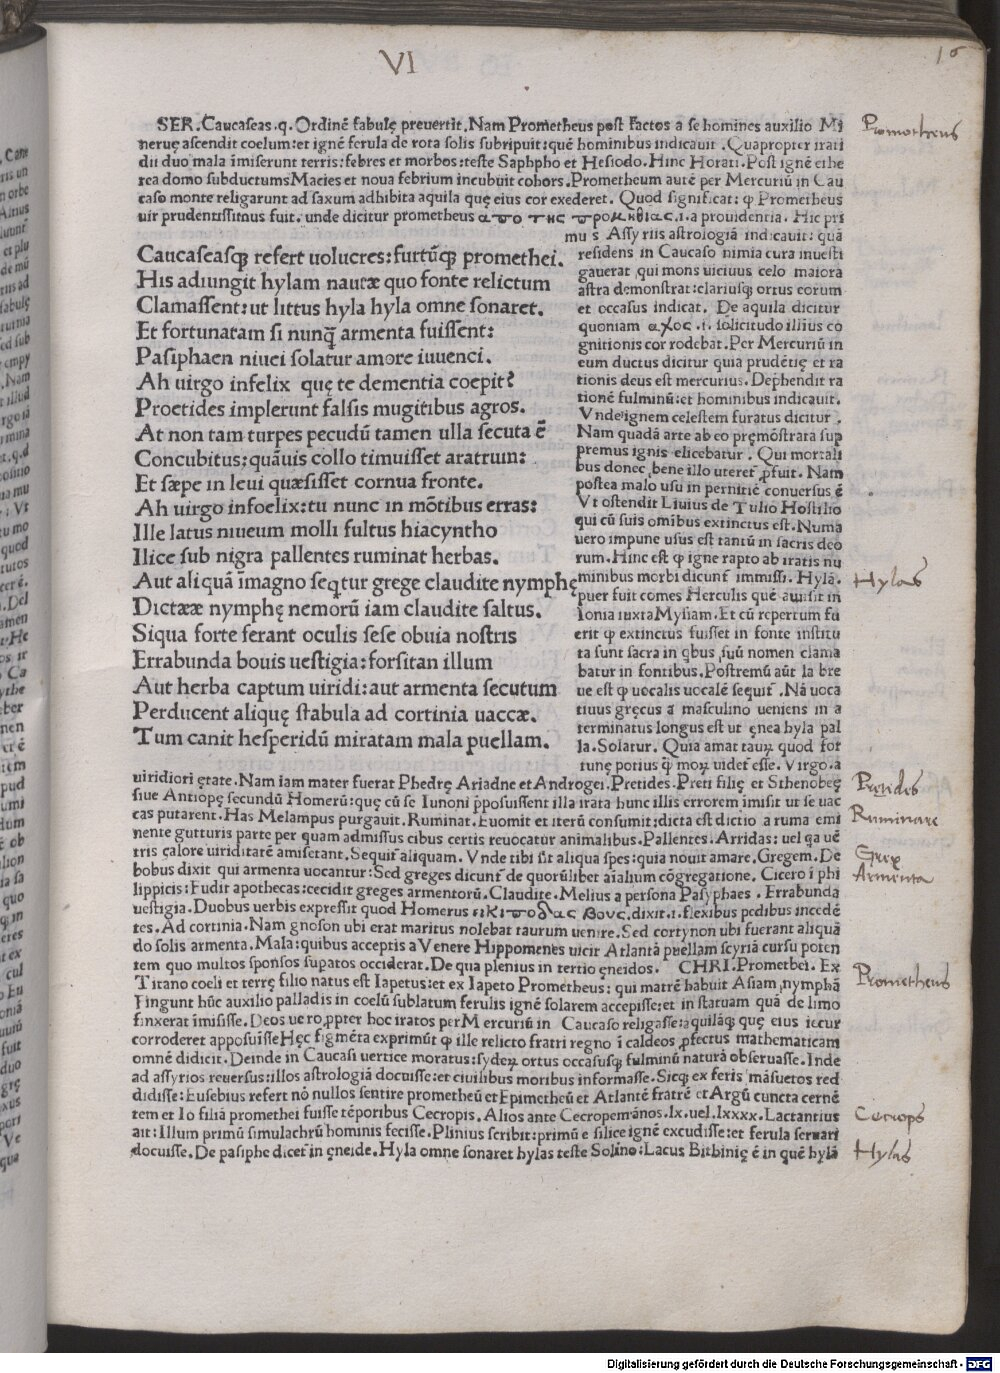 VI
16
SER. Caucaseas.q. Ordinē fabulę preuertit. Nam Prometheus post factos a se homines auxilio Mi
neruę ascendit coelum: et ignē ferula de rota solis subripuit: quē hominibus indicauit. Quapropter irati
dii duo mala īmiserunt terris: febres et morbos: teste Saphpho et Hesiodo. Hinc Horati. Post ignē ethe
rea domo subductum: Macies et noua febrium incubuit cohors. Prometheum autē per Mercuriū in Cau
caso monte religarunt ad saxum adhibita aquila quę eius cor exederet. Quod significat: ꝙ Prometheus
uir prudentissimus fuit. unde dicitur prometheus απο της προμηθιας.i.a prouidentia. Hic pri
Caucaseasqʒ refert uolucres: furtūqʒ promethei.
His adiungit hylam nautæ quo fonte relictum
Clamassent: ut littus hyla hyla omne sonaret.
Et fortunatam si nunq̄ armenta fuissent:
Pasiphaen niuei solatur amore iuuenci.
Ah uirgo infelix quę te dementia coepit?
Proetides implerunt falsis mugitibus agros.
At non tam turpes pecudū tamen ulla secuta ē
Concubitus: quāuis collo timuisset aratrum:
Et sæpe in leui quæsisset cornua fronte.
Ah uirgo infoelix: tu nunc in mōtibus erras:
Ille latus niueum molli fultus hiacyntho
Ilice sub nigra pallentes ruminat herbas.
Aut aliquā īmagno seqtur grege claudite nymphę
Dictææ nymphę nemorū iam claudite saltus.
Siqua forte ferant oculis sese obuia nostris
Errabunda bouis uestigia: forsitan illum
Aut herba captum uiridi: aut armenta secutum
Perducent alique̜ stabula ad cortinia uaccæ.
Tum canit hesperidū miratam mala puellam.
mus Assyriis astrologiā indicauit: quā
residens in Caucaso nimia cura inuesti
gauerat, qui mons uicinus celo maiora
astra demonstrat: clariusqʒ ortus eorum
et occasus indicat. De aquila dicitur
quoniam αχος .i. solicitudo illius co
gnitionis cor rodebat. Per Mercuriū in
eum ductus dicitur quia prudētię et ra
tionis deus est mercurius. Dephendit ra
tionē fulminū: et hominibus indicauit.
Vnde ignem celestem furatus dicitur.
Nam quadā arte ab eo pręmōstrata sup
premus ignis elicebatur. Qui mortali
bus donec bene illo uteret̄ ꝓfuit. Nam
postea malo usu in pernitiē conuersus ē
Vt ostendit Liuius de Tulio Hostilio
qui cū suis omībus extinctus est. Numa
uero impune usus est tantū in sacris deo
rum. Hinc est ꝙ igne rapto ab iratis nu
minibus morbi dicunt̄ immissi. Hylā.
puer fuit comes Herculis quē amisit in
Ionia iuxta Mysiam. Et cū repertum fu
erit ꝙ extinctus fuisset in fonte institu
ta sunt sacra in qbus ,suū nomen clama
batur in fontibus. Postremū aūt la bre
ue est ꝙ uocalis uocalē sequit̄. Nā uoca
tiuus gręcus a masculino ueniens in a
terminatus longus est ut ęnea hyla pal
la. Solatur. Quia amat tauꝝ quod for
tunę potius q̄ moꝝ uidet̄ esse. Virgo. a
uiridiori ętate. Nam iam mater fuerat Phedrę Ariadne et Androgei. Pretides. Preti filię et Sthenobeę
siue Antiopę secundū Homerū: quę cū se Iunoni p̄posuissent illa irata hunc illis errorem imisit ut se uac
cas putarent. Has Melampus purgauit. Ruminat. Euomit et iterū consumit: dicta est dictio a ruma emi
nente gutturis parte per quam admissus cibus certis reuocatur animalibus. Pallentes. Arridas: uel qa uē
tris calore uiriditatē amiserant. Sequit̄ aliquam. Vnde tibi sūt aliqua spes: quia nouit amare. Gregem. De
bobus dixit qui armenta uocantur: Sed greges dicunt̄ de quorūlibet aīalium cōgregatione. Cicero ī phi
lippicis: Fudit apothecas: cecidit greges armentorū. Claudite. Melius a persona Pasyphaes. Errabunda
uestigia. Duobus uerbis expressit quod Homerus ειλιποδας βους. dixit.i. flexibus pedibus incedē
tes. Ad cortinia. Nam gnoson ubi erat maritus nolebat taurum uenire. Sed cortynon ubi fuerant aliquā
do solis armenta. Mala: quibus acceptis a Venere Hippomenes uicit Atlantā puellam scyriā cursu poten
tem quo multos sponsos supatos occiderat. De qua plenius in tertio ęneidos. CHRI. Promethei. Ex
Titano coeli et terrę filio natus est Iapetus: et ex Iapeto Prometheus: qui matrē habuit Asiam, nymphā
Fingunt hūc auxilio palladis in coelū sublatum ferulis ignē solarem accepisse: et in statuam quā de limo
finxerat īmisisse. Deos uero, ꝓpter hoc iratos per Mercuriū in Caucaso religasse: aquilāqʒ quę eius iecur
corroderet apposuisse Hęc figmēta exprimūt ꝙ ille relicto fratri regno ī caldeos ꝓfectus mathematicam
omnē didicit. Deinde in Caucasi uertice moratus: sydeꝝ ortus occasusqʒ fulminū naturā obseruasse. Inde
ad assyrios reuersus: illos astrologiā docuisse: et ciuilibus moribus informasse. Sicqʒ ex feris māsuetos red
didisse: Eusebius refert nō nullos sentire prometheū et Epimetheū et Atlantē fratrē et Argū cuncta cernē
tem et Io filiā promethei fuisse tēporibus Cecropis. Alios ante Cecropem ānos. lx. uel. lxxxx. Lactantius
ait: Illum primū simulachrū hominis fecisse. Plinius scribit: primū e silice ignē excudisse: et ferula seruari
docuisse. De pasiphe dicet̄ in ęneide. Hyla omne sonaret hylas teste Solino: Lacus Bithinię ē in quē hylā
Prometheus
Hylas
Prętides
Ruminare
Grex
Armenta
Prometheus
Cecrops
Hylas
Digitalisierung gefördert durch die Deutsche Forschungsgemeinschaft - DFG